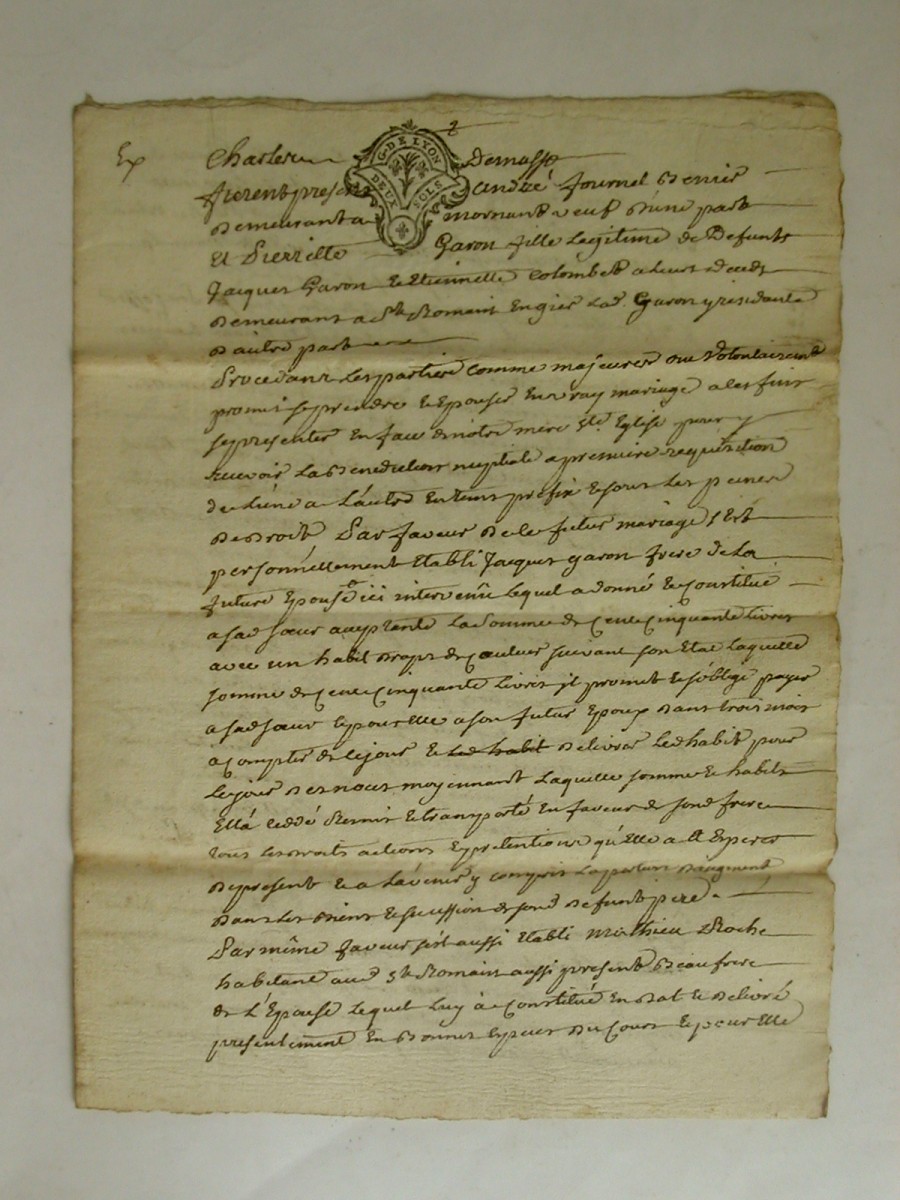 Ex
2
G. DE LYON
DEUX SOLS
Charles Demasse
furent presents André Fournel Verrier
demeurant a Mornant veuf d'une part
Et Pierrette Garon fille Legitime de Defunts
Jacques Garon et Etiennette Colombet a leurs deceds
demeurant a St Romain En gier Lad Garon y residante
d'autre part
Procedant Les parties comme majeures ont volontairemt
promis se prendre et Epouser En vray mariage a Ces fins
se presenter En face de notre mere Ste Eglise pour y
recevoir La Benediction nuptiale a premiere requisition
de L'une a L'autre En tems prefix et sous Les peines
de droit Par faveur de ce futur mariage s'Est
personnellement Etabli Jacques garon frere de La
future Epouse ici intervenu Lequel a donné et Constitué
a sad soeur acceptante La Somme de Cent Cinquante Livres
avec un habit drap de Couleur suivant son Etat Laquelle
somme de Cent Cinquante Livres il promet et s'oblige payer
a sad soeur et pour Elle a son futur Epoux dans trois mois
a Compter de Ce jour et Led habit delivrer Led habit pour
Le jour des noces moyennant Laquelle somme et habits
Ell'a Ceddé Remis et transporté En faveur de sond frere
tous Les droits actions Et pretentions qu'Elle a et Esperer
de present et a L'avenir y compris La portion d'augment
dans Les Biens et succession de fond defunt pere.
Par même faveur s'est aussi Etabli Mathieu Roche
habitant aud St Romain aussi present Beaufrere
de L'Epouse Lequel Luy a Constitué En dot et delivré
presentement En Bonnes Especes du Cours Et pour Elle